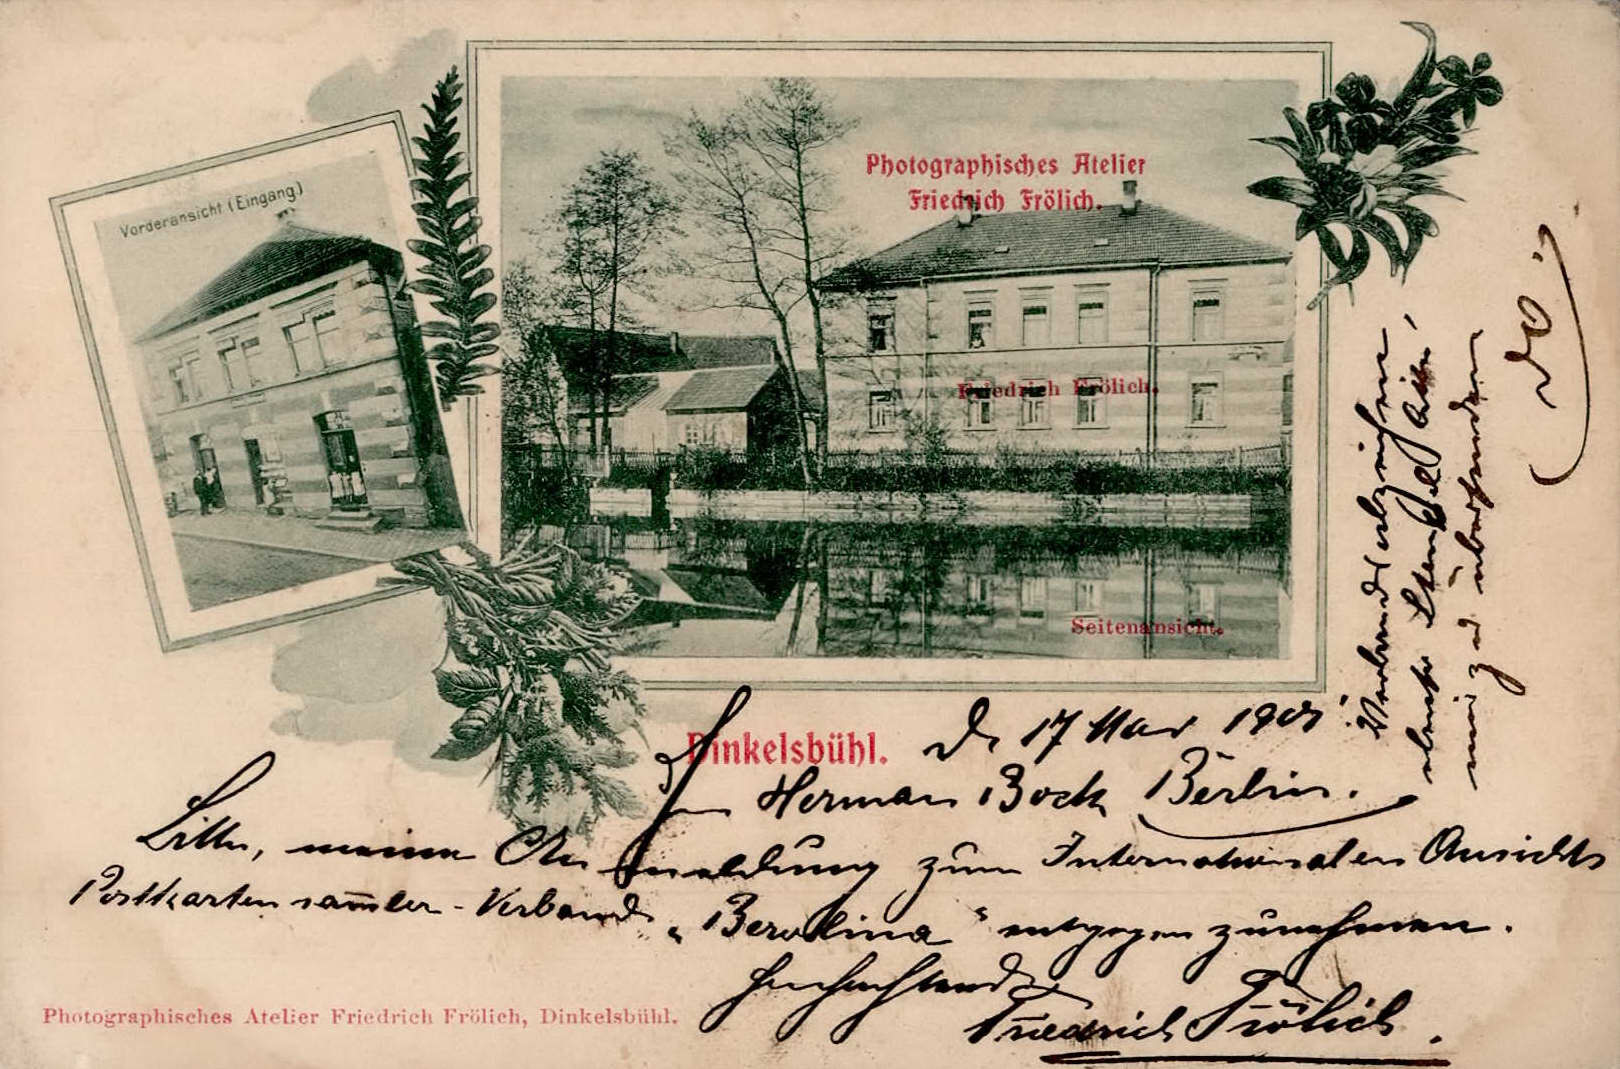 Vorderansicht (Eingang)
Photographisches Atelier
Friedrich Frölich.
Friedrich Frölich.
Seitenansicht.
Dinkelsbühl.
17 Mai
Herman Bock Berlin.
Bitte, meine Anmeldung zum Internationalen Ansichts
Postkartensammler-Verband „Berolina“ entgegen zunehmen.
Hochachtend
Friedrich Frölich.
Photographisches Atelier Friedrich Frölich, Dinkelsbühl.
mir zu übersenden